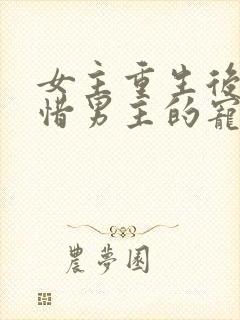 女主重生後
惜男主的寵
農夢園